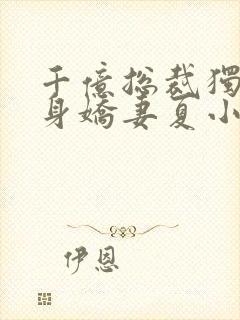 千億總裁獨
身嬌妻夏小
伊恩